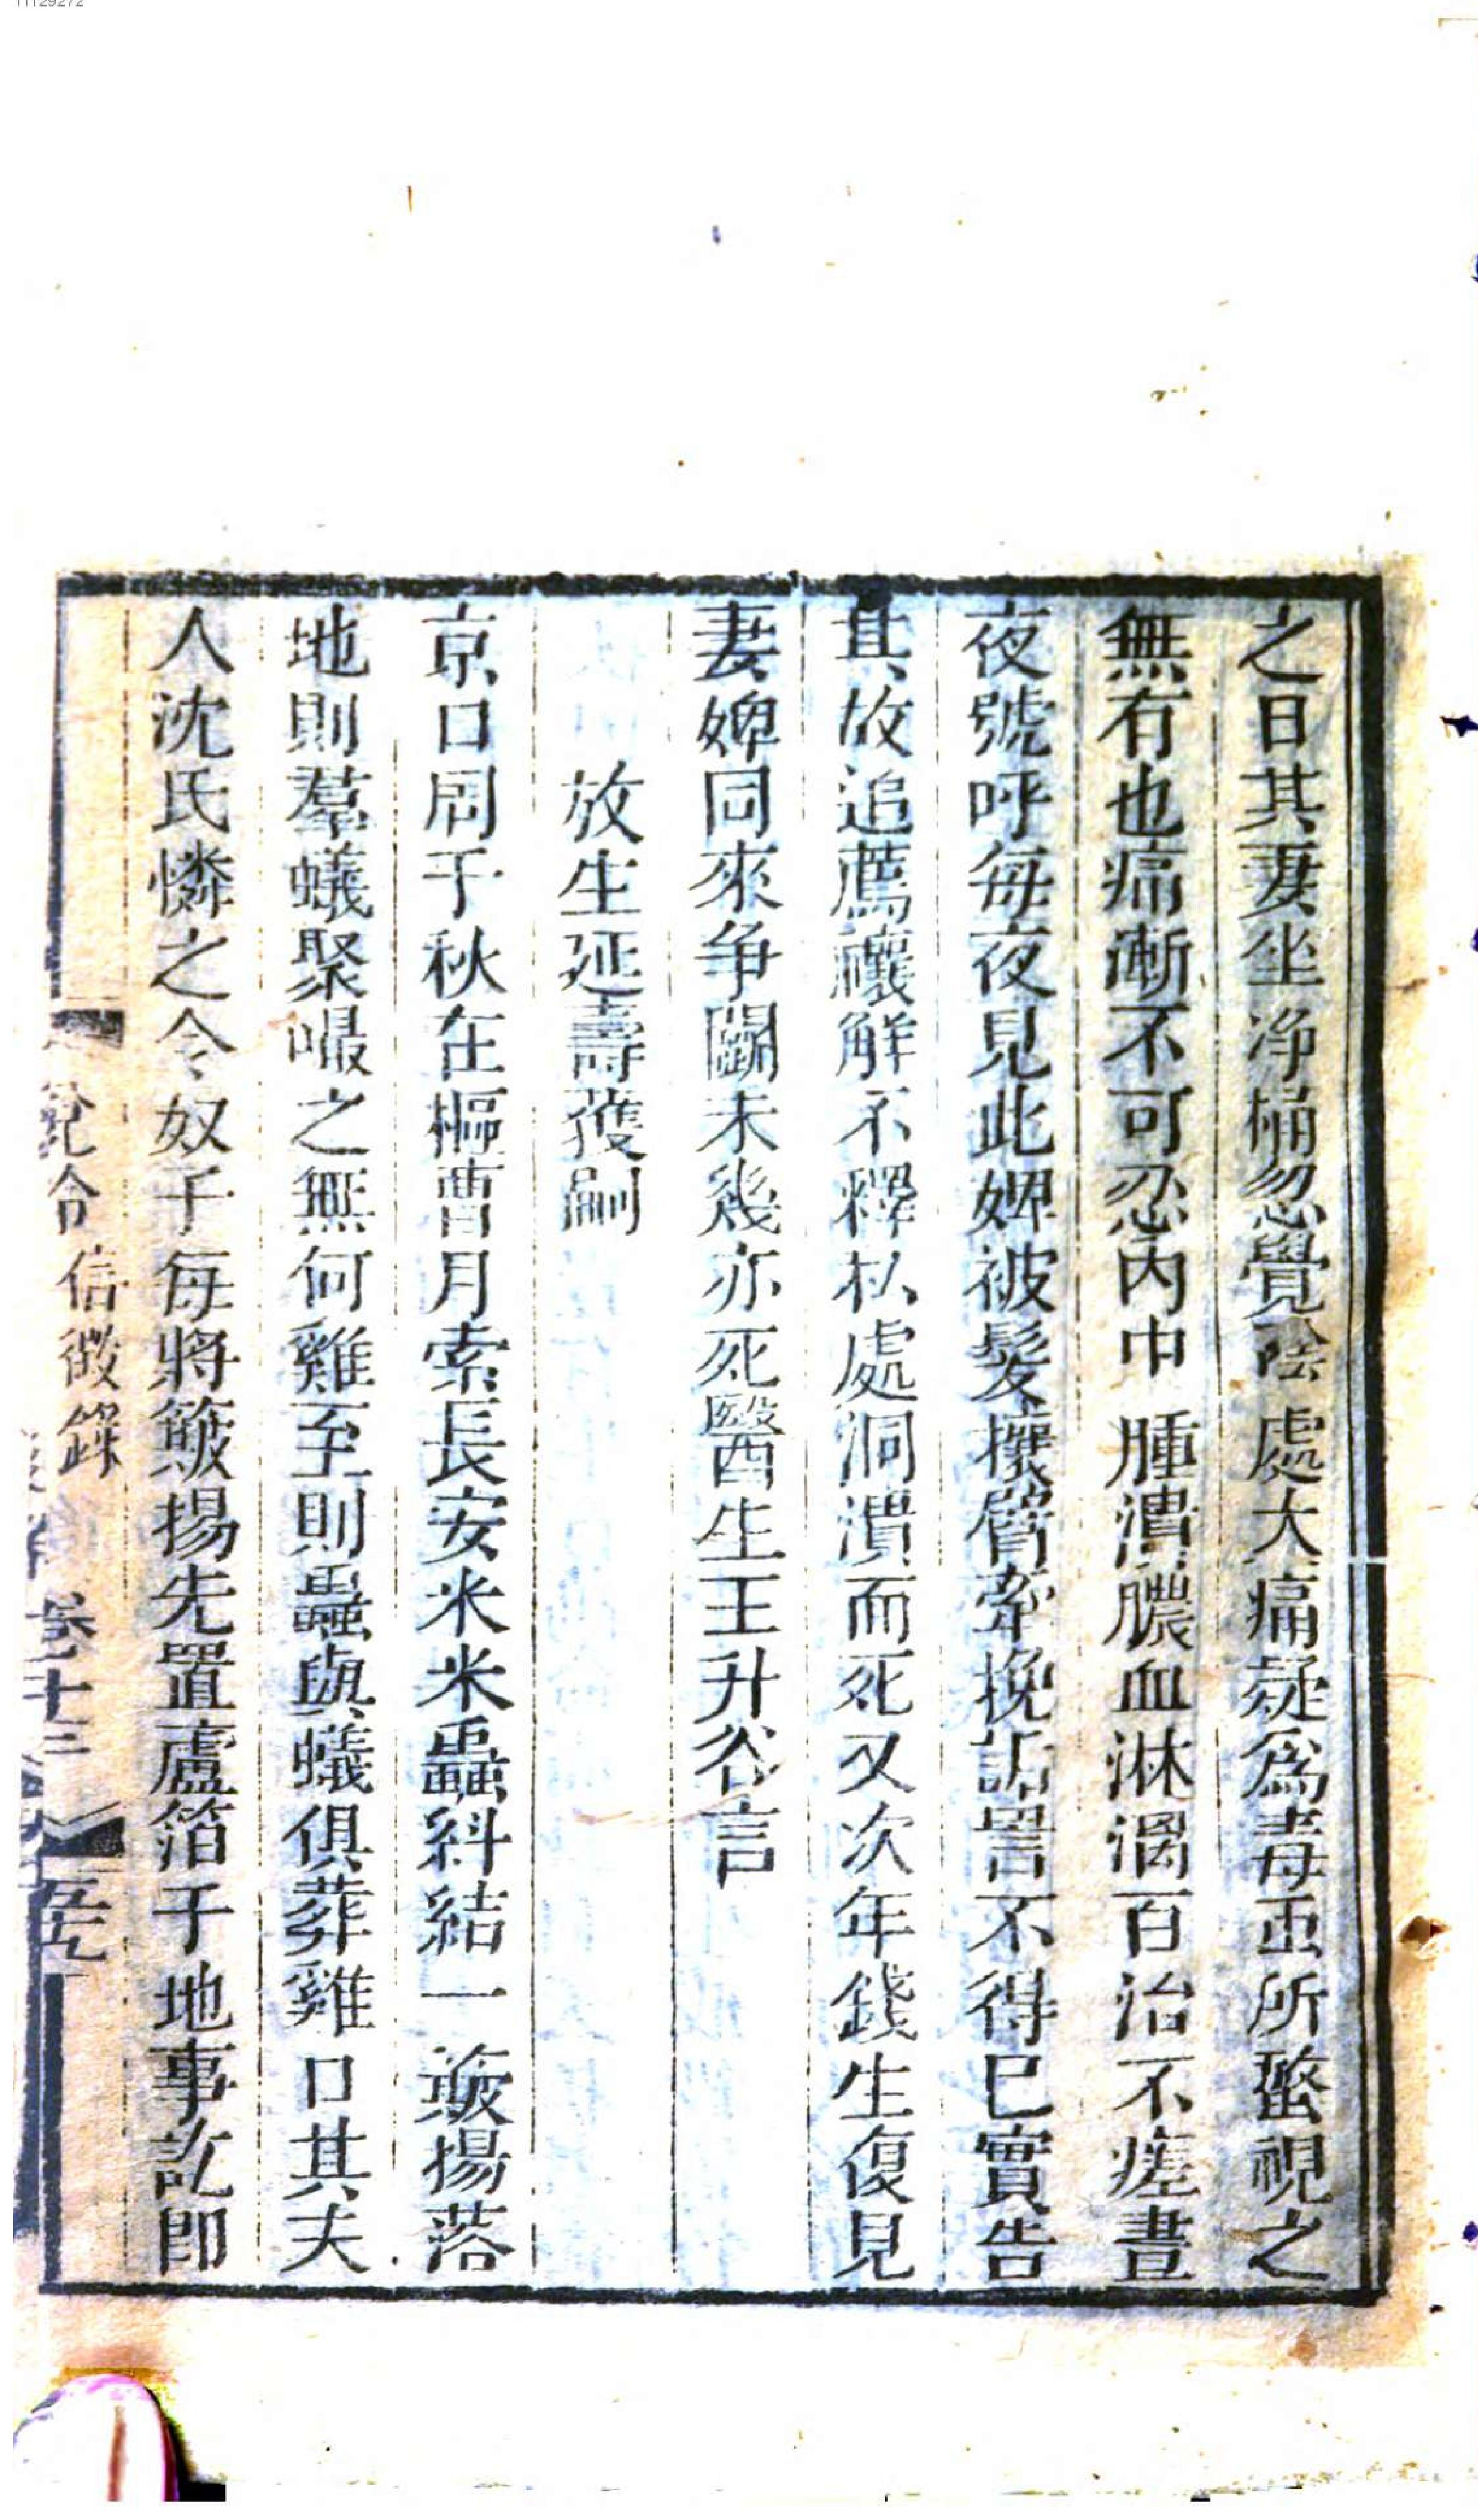 11129272
之日其妻坐淨桶忽覺陰處大痛疑爲毒䖝所螫視之
無有也痛漸不可忍內中腫潰膿血淋漓百治不瘥晝
夜號呼每夜見此婢被髮攘臂牽挽詬詈不得已實告
其故追薦禳解不釋私處洞潰而死又次年錢生復見
妻婢同來爭鬭未幾亦死醫生王升谷言
放生延壽獲嗣
京口周于秋在樞曹月索長安米米蟲糾結一簸揚落
地則羣蟻聚嘬之無何雞至則蟲與蟻俱葬雞口其夫
人沈氏憐之令奴于每將簸揚先置蘆箔于地事訖即
信徵錄
卷十三